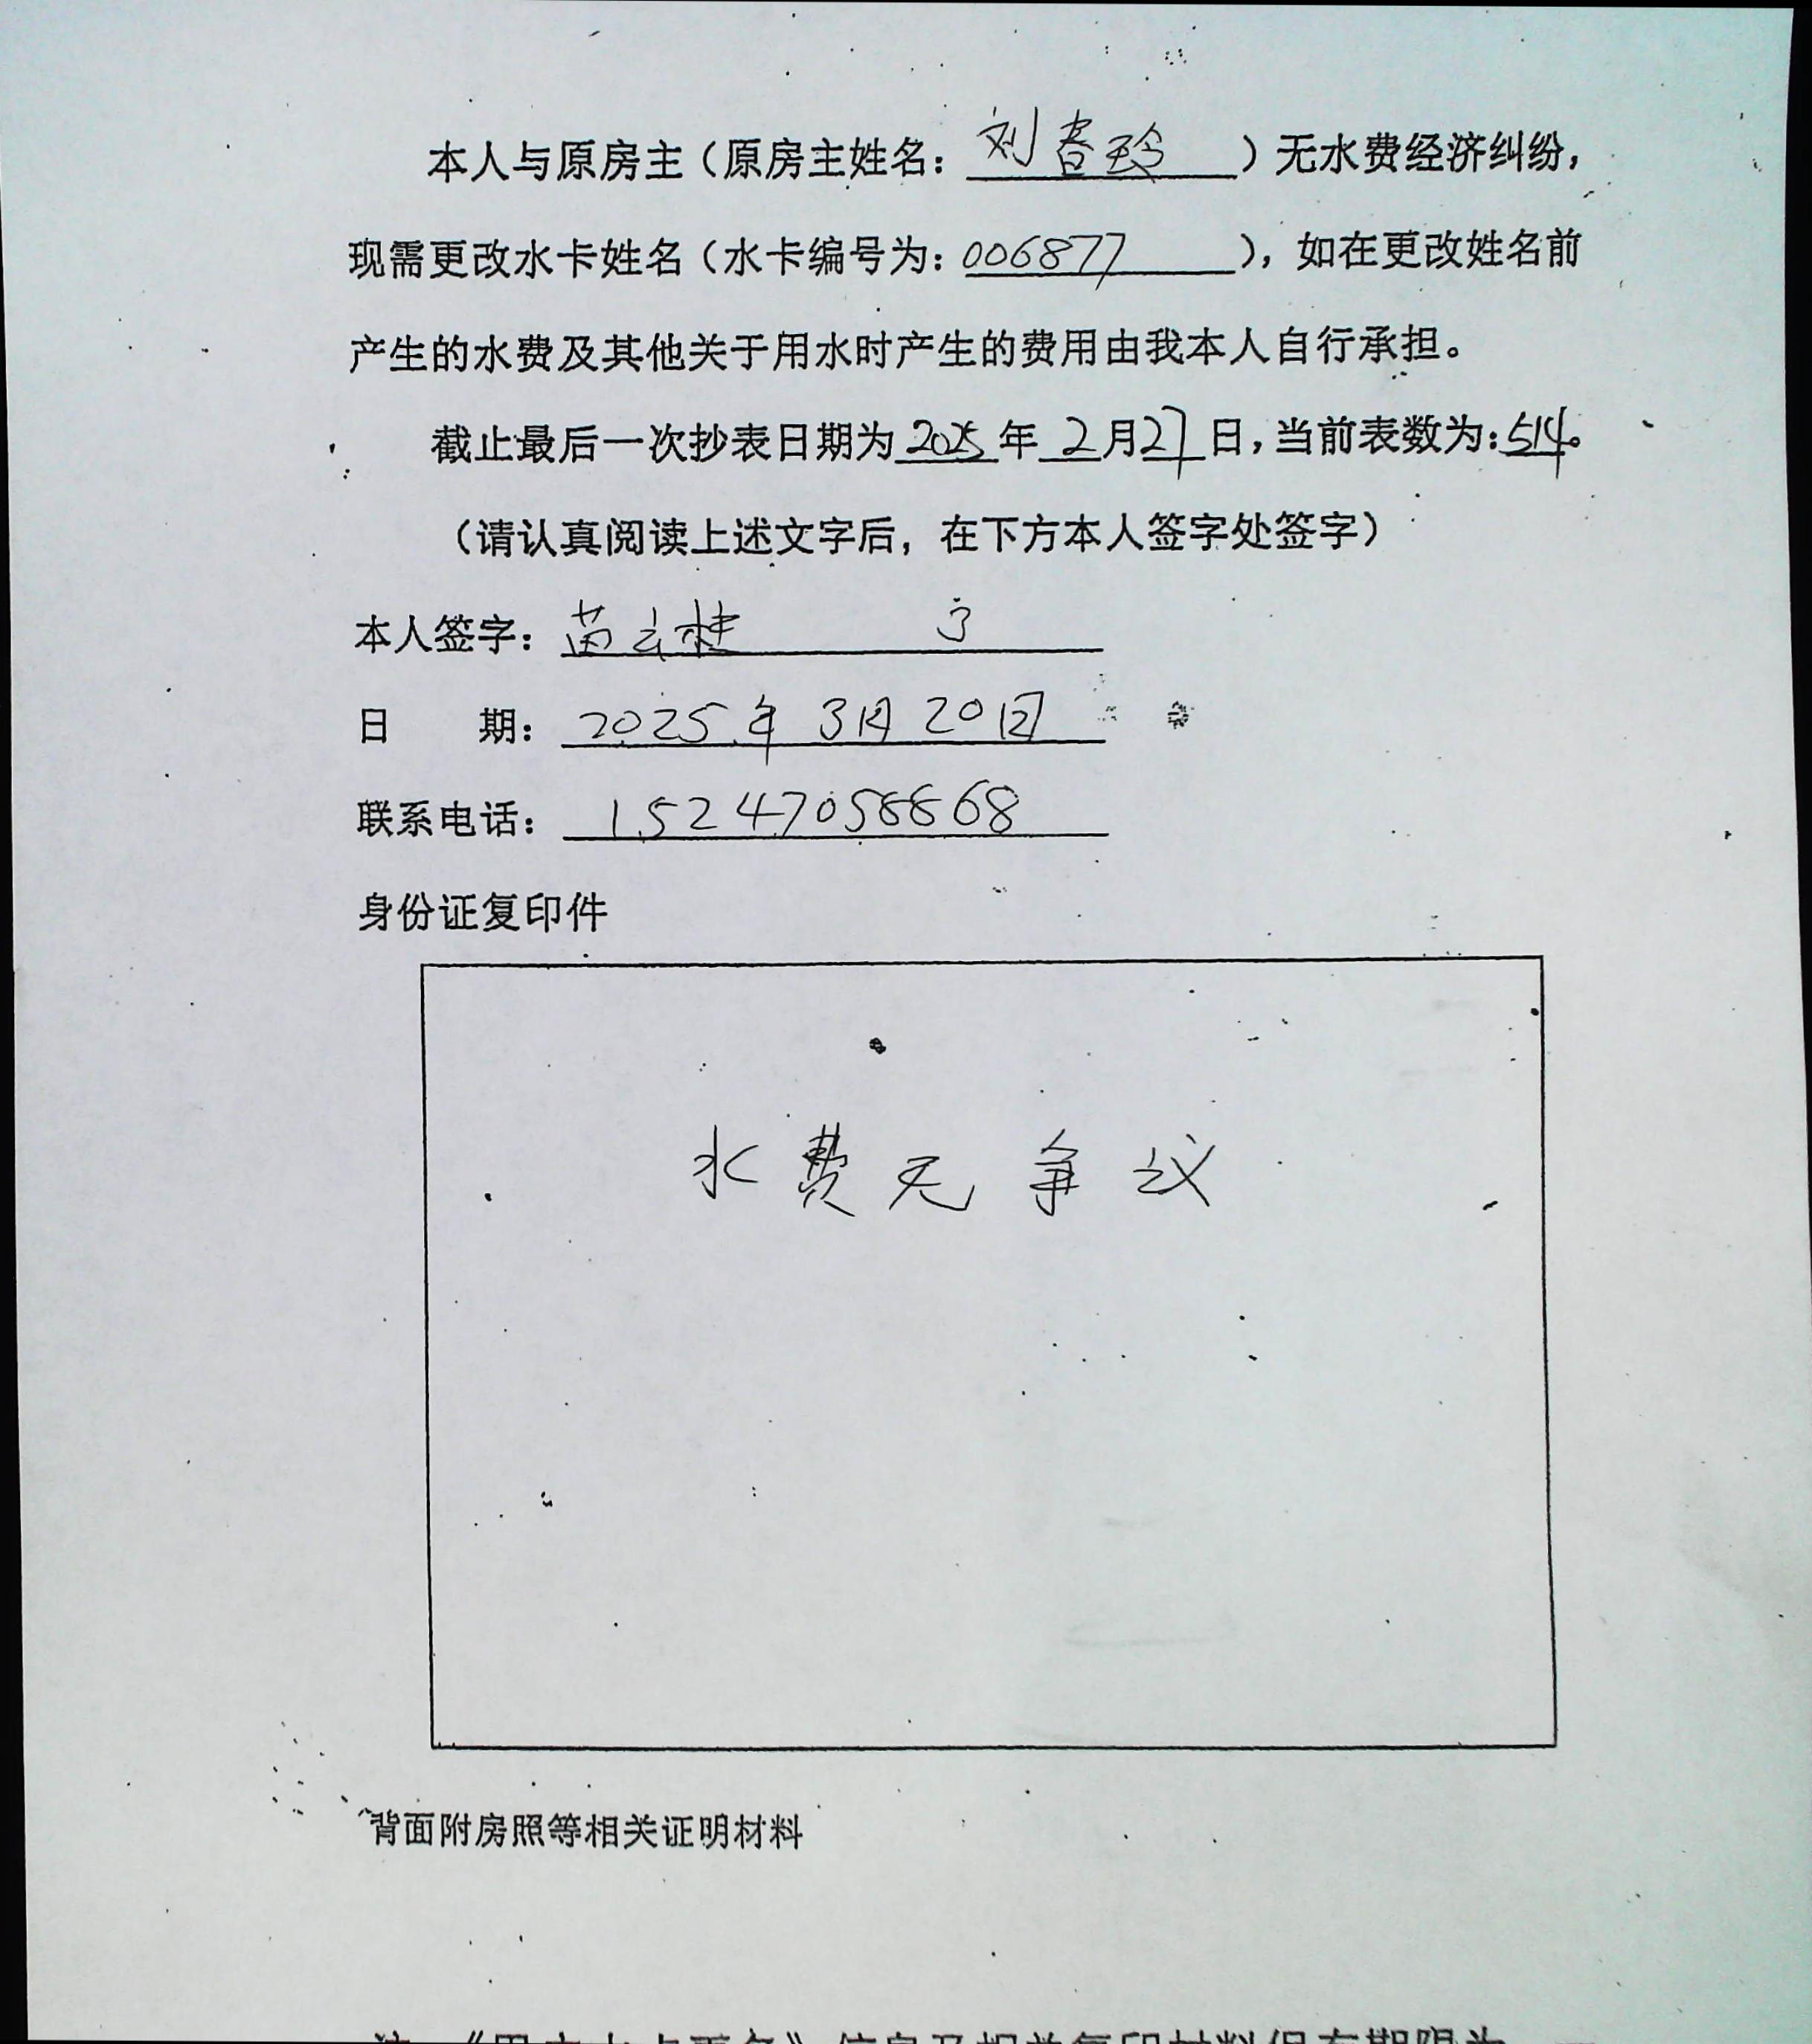 本人与原房主（原房主姓名：刘春玲）无水费经济纠纷，
现需更改水卡姓名（水卡编号为：006877），如在更改姓名前
产生的水费及其他关于用水时产生的费用由我本人自行承担。
截止最后一次抄表日期为2025年2月27日，当前表数为：514。
（请认真阅读上述文字后，在下方本人签字处签字）
本人签字：苗云桂
日 期：2025年3月20日
联系电话：15247058868
身份证复印件
水费无争议
背面附房照等相关证明材料